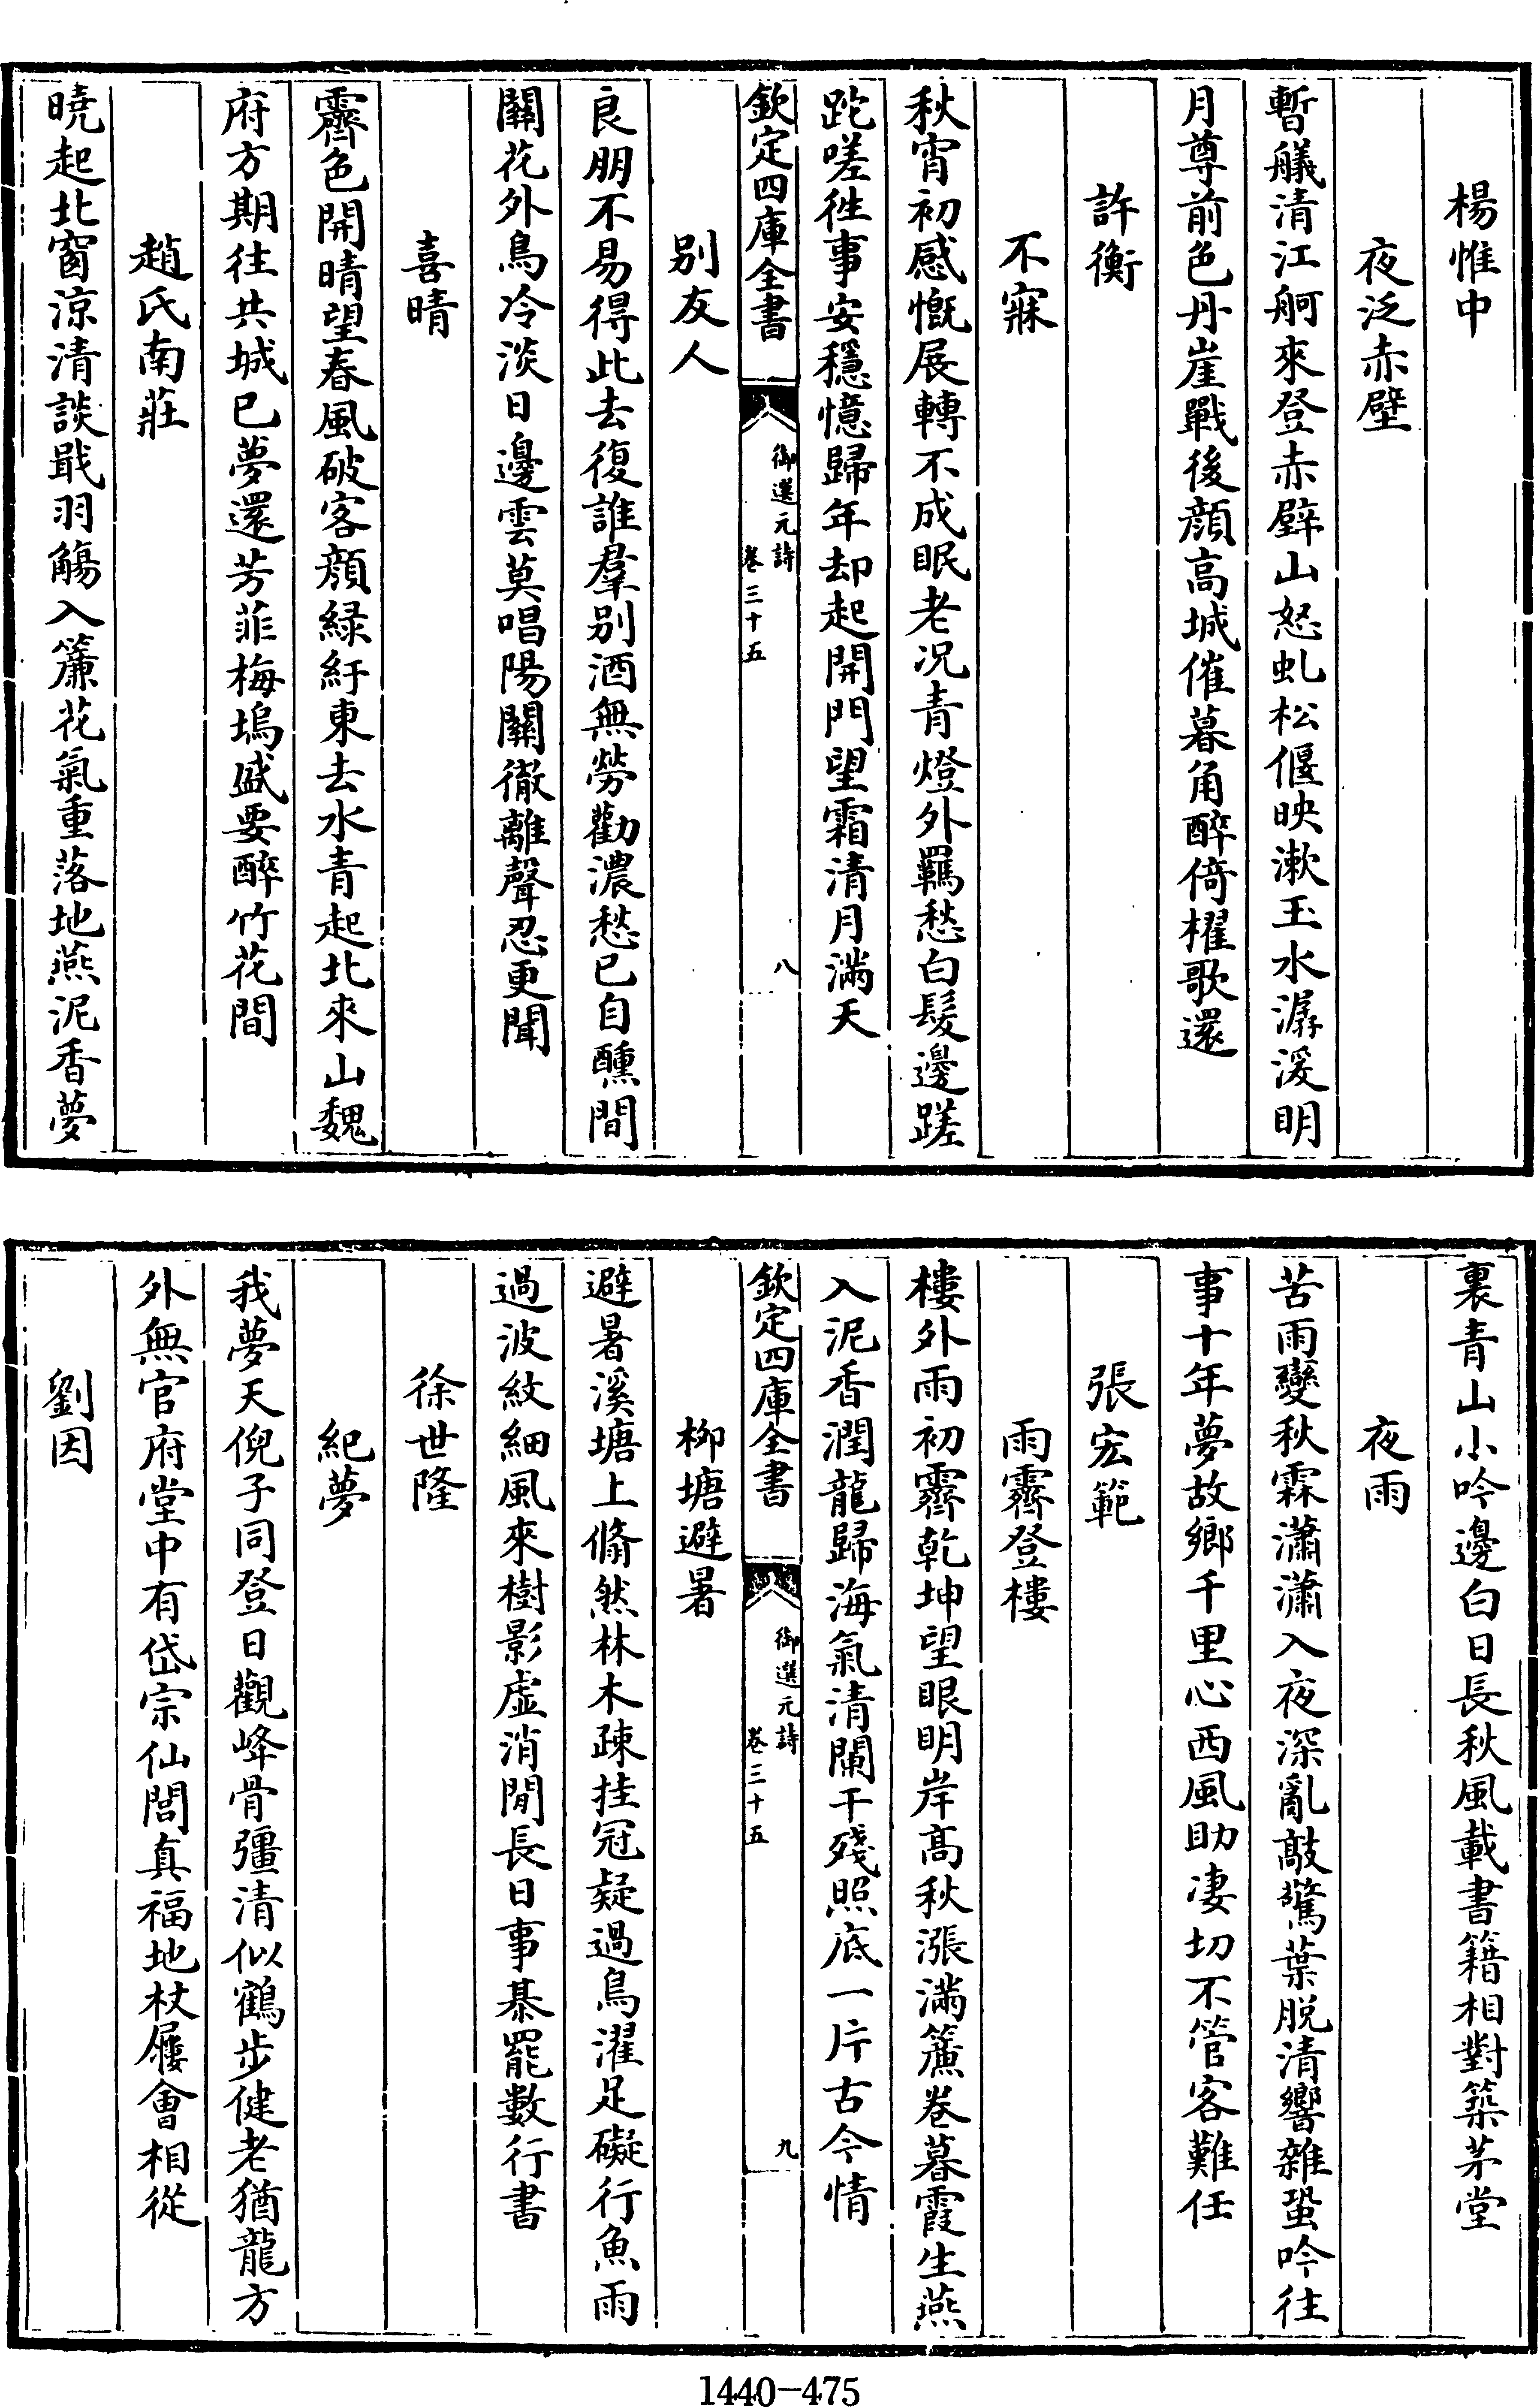 楊惟中
夜泛赤壁
暫艤清江舸來登赤壁山怒虬松偃映漱玉水潺湲明
月尊前色丹崖戰後顔高城催暮角醉倚櫂歌還
許衡
不寐
秋宵初感慨展轉不成眠老况青燈外羈愁白髮邊蹉
跎嗟徃事安穩憶歸年却起開門望霜清月滿天
欽定四庫全書
御選元詩
卷三十五
八
别友人
良朋不易得此去復誰羣别酒無勞勸濃愁已自醺間
關花外鳥冷淡日邊雲莫唱陽關徹離聲忍更聞
喜晴
霽色開晴望春風破客顔緑紆東去水青起北來山魏
府方期往共城已夢還芳菲梅塢盛要醉竹花間
趙氏南莊
曉起北窗涼清談戢羽觴入簾花氣重落地燕泥香夢
裏青山小吟邊白日長秋風載書籍相對築茅堂
夜雨
苦雨變秋霖瀟瀟入夜深亂敲驚葉脱清響雜蛩吟往
事十年夢故鄉千里心西風助凄切不管客難任
張宏範
雨霽登樓
樓外雨初霽乾坤望眼明岸高秋漲滿簾卷暮霞生燕
入泥香潤龍歸海氣清闌干殘照底一片古今情
欽定四庫全書
御選元詩
卷三十五
九
柳塘避暑
避暑溪塘上翛然林木疎挂冠疑過鳥濯足礙行魚雨
過波紋細風來樹影虚消閒長日事棊罷數行書
徐世隆
紀夢
我夢天倪子同登日觀峰骨彊清似鶴步健老猶龍方
外無官府堂中有岱宗仙閭真福地杖屨會相從
劉因
1440-475